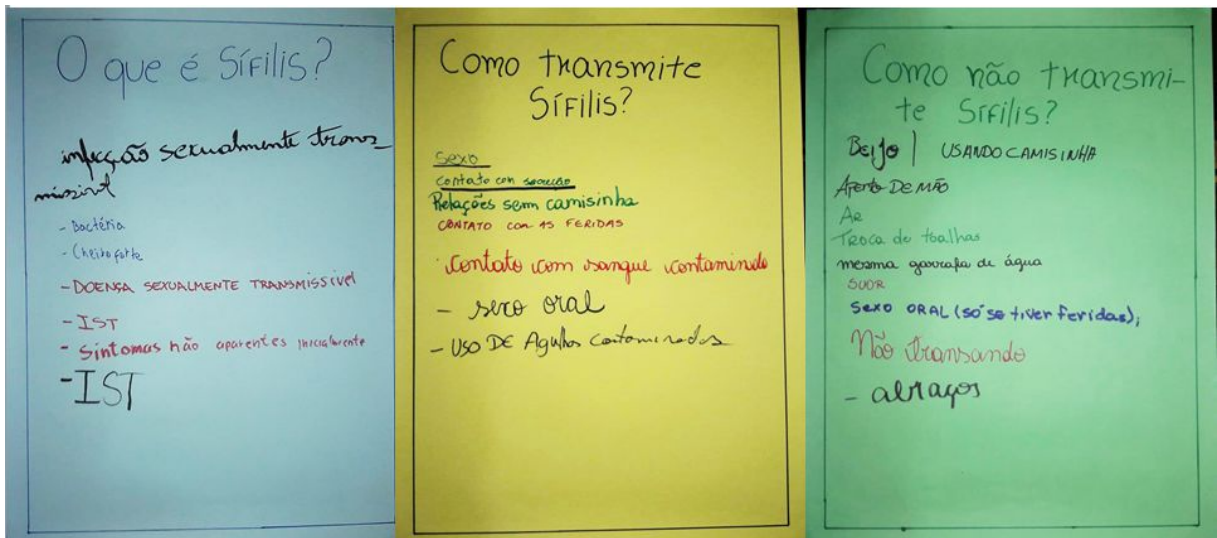 O que é Sífilis?
infecção sexualmente trans_
missível
- Bactéria
- Cheiro forte
- DOENSA SEXUALMENTE TRANSMISSÍVEl
- IST
- Sintomas não aparentes inicialmente
- IST
Como transmite
Sífilis?
Sexo
Contato com secreção
Relações sem camisinha
CONTATO com AS FERIDAS
contato com sangue contaminado
- sexo oral
- USO DE Agulhas Contaminadas
Como não transmi-
te Sífilis?
Beijo | USANDO CAMISINHA
Aperto DE MÃO
Ar
Troca de toalhas
mesma garrafa de água
SUOR
Sexo ORAL (só se tiver feridas);
Não transando
- abraços